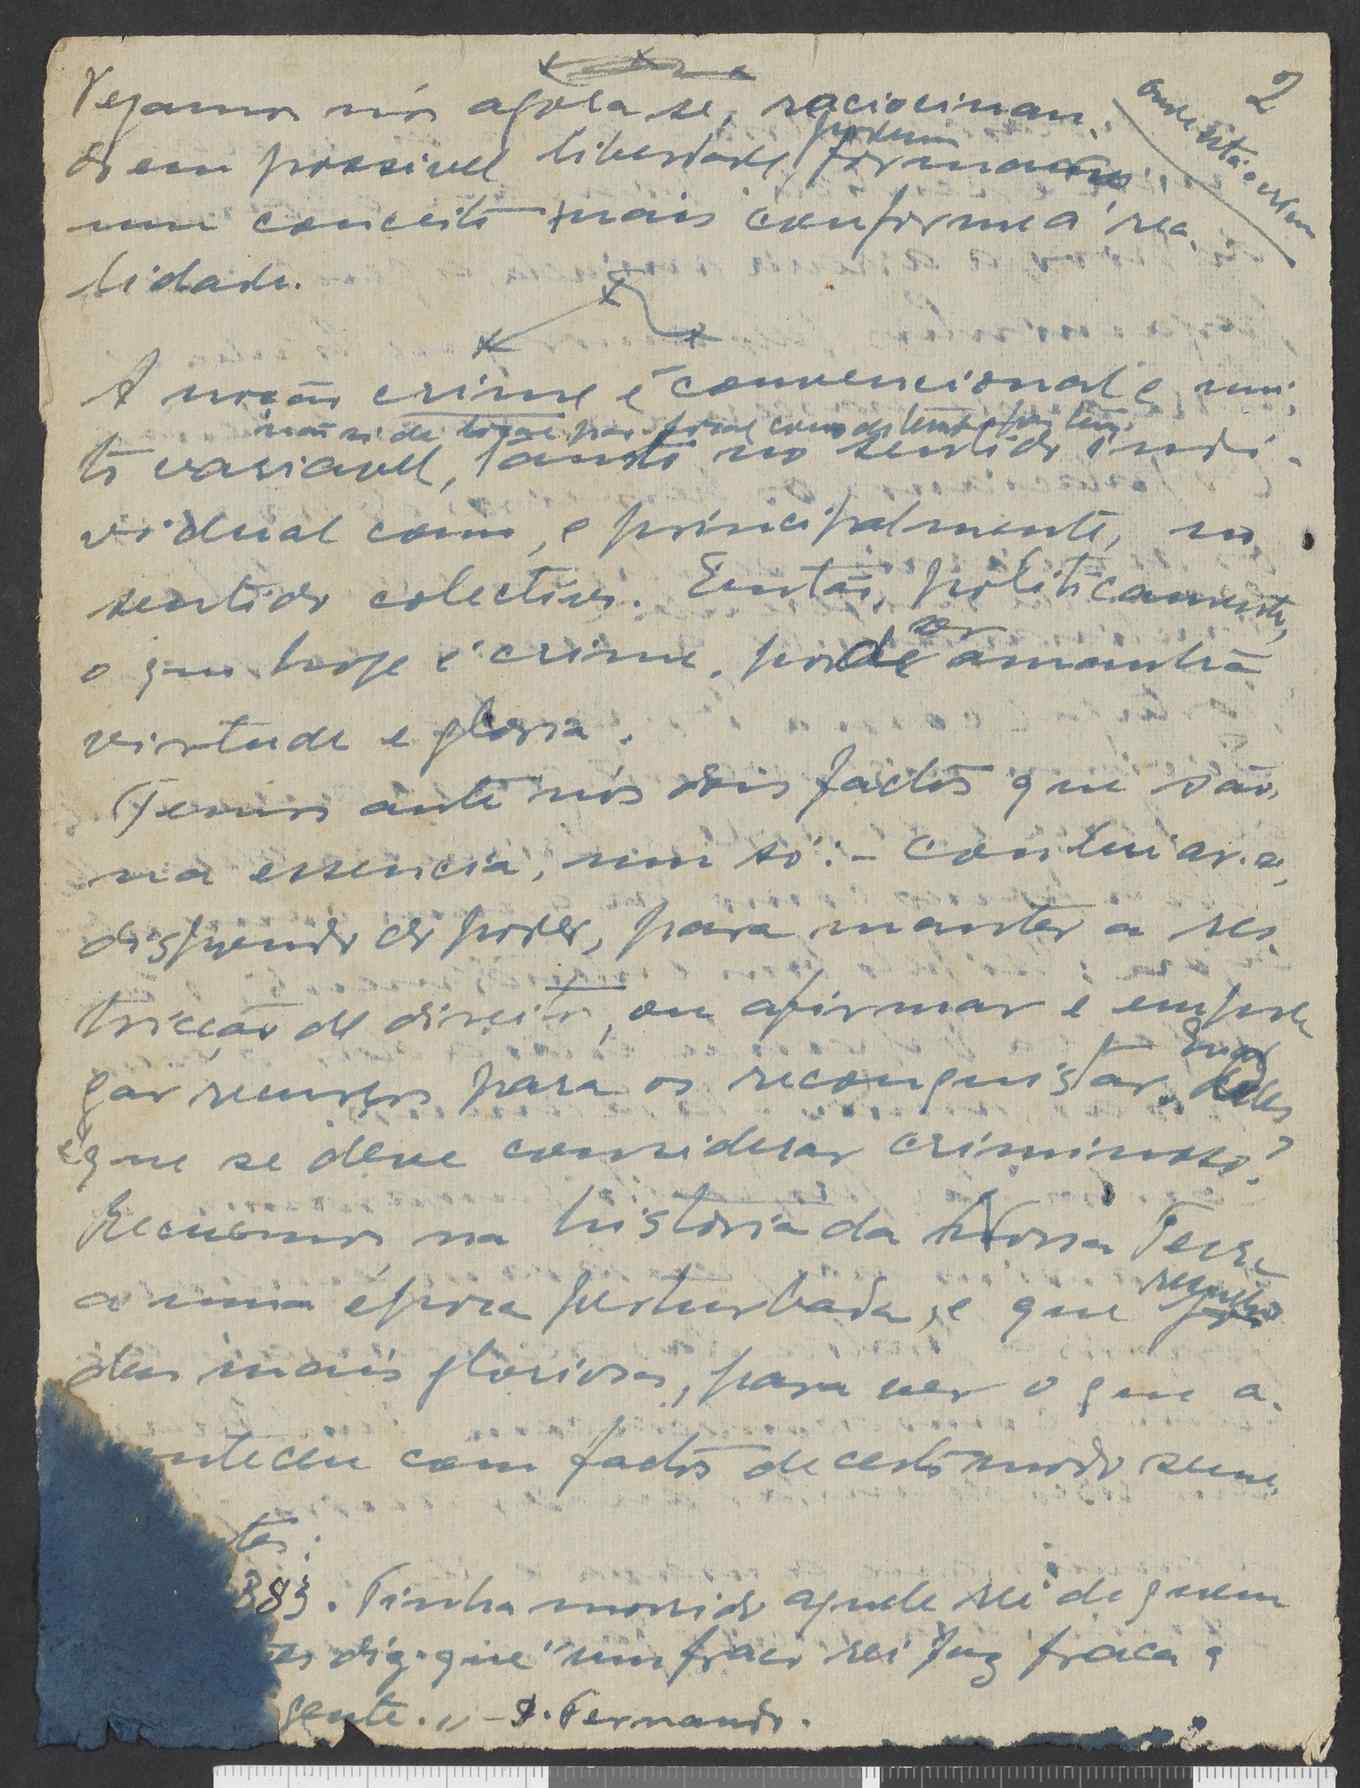 2
onde está o crime
Vejamos nós agora se, raciocinan-
do em possivel liberdade, podemos formar
um conceito mais conforme á rea-
lidade.
A noção crime é convencional e mui-
não só de logar para logar como de tempo para tempo
to variavel, tanto no sentido indi-
vidual como, e principalmente, no
sentido colectivo. Então, politicamente,
o que hoje é crime, pode ser amanhã
virtude e gloria.
Temos ante nós dois factos que são,
na essencia, um só: - conluiar-se,
dispondo do poder, para manter a res-
tricção de direito, ou afirmar e empre
gar recursos para os reconquistar. Qual deles
é que se deve considerar criminoso?
Recuemos na historia da Nossa Terra
a uma época perturbada, e que
das mais gloriosas, para ver o que a-
onteceu com factos de certo modo seme-
tes:
383. Tinha morrido aquele rei de quem
es diz que "um fraco rei faz fraca a
gente." - D. Fernando.